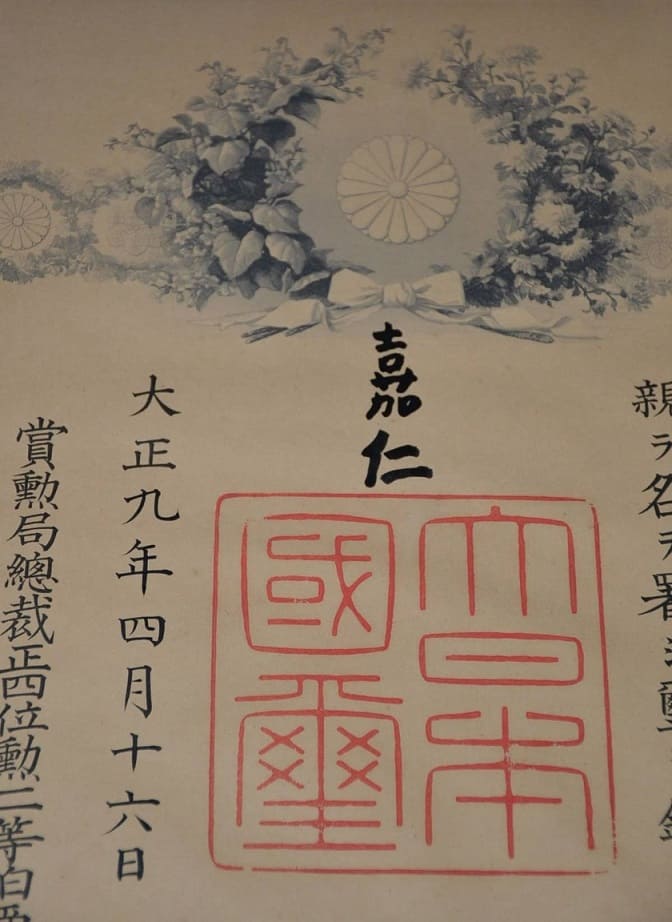 親ラ名ヲ署シ
嘉仁
大日本
國璽
大正九年四月十六日
賞勳局總裁正四位勳二等伯